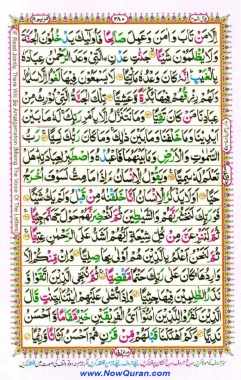 قال الم ١٦
٣٨٠
إِلَّا مَنْ تَابَ وَاٰمَنَ وَعَمِلَ صَالِحًا فَاُولٰٓئِكَ يَدْخُلُوْنَ الْجَنَّةَ
وَلَا يُظْلَمُوْنَ شَيْئًا جَنّٰتِ عَدْنِ الَّتِيْ وَعَدَ الرَّحْمٰنُ عِبَادَهٗ
بِالْغَيْبِ اِنَّهٗ كَانَ وَعْدُهٗ مَاْتِيًّا لَا يَسْمَعُوْنَ فِيْهَا لَغْوًا اِلَّا سَلٰمًا
وَلَهُمْ رِزْقُهُمْ فِيْهَا بُكْرَةً وَّعَشِيًّا تِلْكَ الْجَنَّةُ الَّتِيْ نُوْرِثُ مِنْ
عِبَادِنَا مَنْ كَانَ تَقِيًّا وَمَا نَتَنَزَّلُ اِلَّا بِاَمْرِ رَبِّكَ لَهٗ مَا بَيْنَ
اَيْدِيْنَا وَمَا خَلْفَنَا وَمَا بَيْنَ ذٰلِكَ وَمَا كَانَ رَبُّكَ نَسِيًّا رَبُّ
السَّمٰوٰتِ وَالْاَرْضِ وَمَا بَيْنَهُمَا فَاعْبُدْهُ وَاصْطَبِرْ لِعِبَادَتِهٖ هَلْ
تَعْلَمُ لَهٗ سَمِيًّا وَيَقُوْلُ الْاِنْسَانُ ءَاِذَا مَا مِتُّ لَسَوْفَ اُخْرَجُ
حَيًّا اَوَلَا يَذْكُرُ الْاِنْسَانُ اَنَّا خَلَقْنٰهُ مِنْ قَبْلُ وَلَمْ يَكُ شَيْئًا
فَوَرَبِّكَ لَنَحْشُرَنَّهُمْ وَالشَّيٰطِيْنَ ثُمَّ لَنُحْضِرَنَّهُمْ حَوْلَ جَهَنَّمَ جِثِيًّا
ثُمَّ لَنَنْزِعَنَّ مِنْ كُلِّ شِيْعَةٍ اَيُّهُمْ اَشَدُّ عَلَى الرَّحْمٰنِ عِتِيًّا
ثُمَّ لَنَحْنُ اَعْلَمُ بِالَّذِيْنَ هُمْ اَوْلٰى بِهَا صِلِيًّا وَاِنْ مِّنْكُمْ اِلَّا
وَارِدُهَا كَانَ عَلٰى رَبِّكَ حَتْمًا مَّقْضِيًّا ثُمَّ نُنَجِّي الَّذِيْنَ اتَّقَوْا وَّ
نَذَرُ الظّٰلِمِيْنَ فِيْهَا جِثِيًّا وَاِذَا تُتْلٰى عَلَيْهِمْ اٰيٰتُنَا بَيِّنٰتٍ قَالَ
الَّذِيْنَ كَفَرُوْا لِلَّذِيْنَ اٰمَنُوْا اَيُّ الْفَرِيْقَيْنِ خَيْرٌ مَّقَامًا وَّاَحْسَنُ
نَدِيًّا وَكَمْ اَهْلَكْنَا قَبْلَهُمْ مِّنْ قَرْنٍ هُمْ اَحْسَنُ اَثَاثًا وَّرِءْيًا
www.NowQuran.com